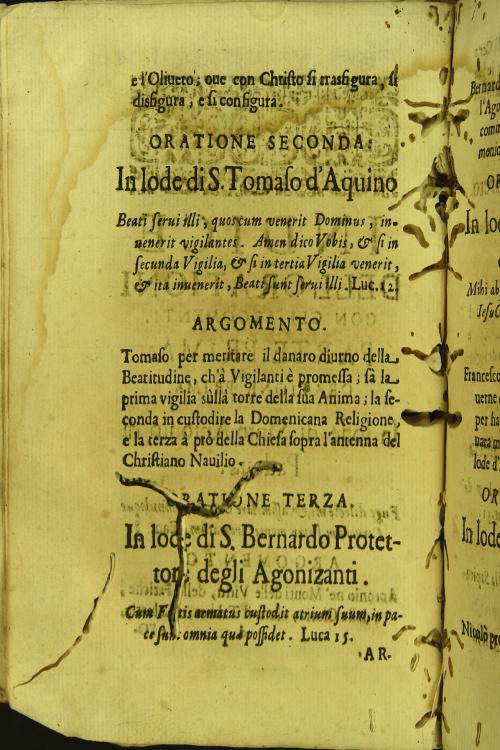 e l'Oliueto; oue con Christo si trasfigura, si
disfigura, e si configura.
ORATIONE SECONDA:
In lode di S. Tomaso d'Aquino
Beati serui illi, quos cum venerit Dominus, in-
uenerit vigilantes. Amen dico Vobis, & si in
secunda Vigilia, & si in tertia Vigilia venerit,
& ita inuenerit, Beati sunt serui illi. Luc. 12.
ARGOMENTO.
Tomaso per meritare il danaro diurno della
Beatitudine, ch'à Vigilanti è promessa; fà la
prima vigilia sùlla torre della sua Anima; la se-
conda in custodire la Domenicana Religione,
e la terza à prò della Chiesa sopra l'antenna del
Christiano Nauilio.
ORATIONE TERZA.
In lode di S. Bernardo Protet-
tore degli Agonizanti.
Cum Fortis armatus custodit atrium suum, in pa-
ce sunt omnia quæ possidet. Luca 15.
AR-
Bernard
l'Ago
com
monic
OR
In lod
Mihi ab
Iesu C
Francesco
uerne
per ha
uara m
lode d'
OR
In lode
Nicolò pr